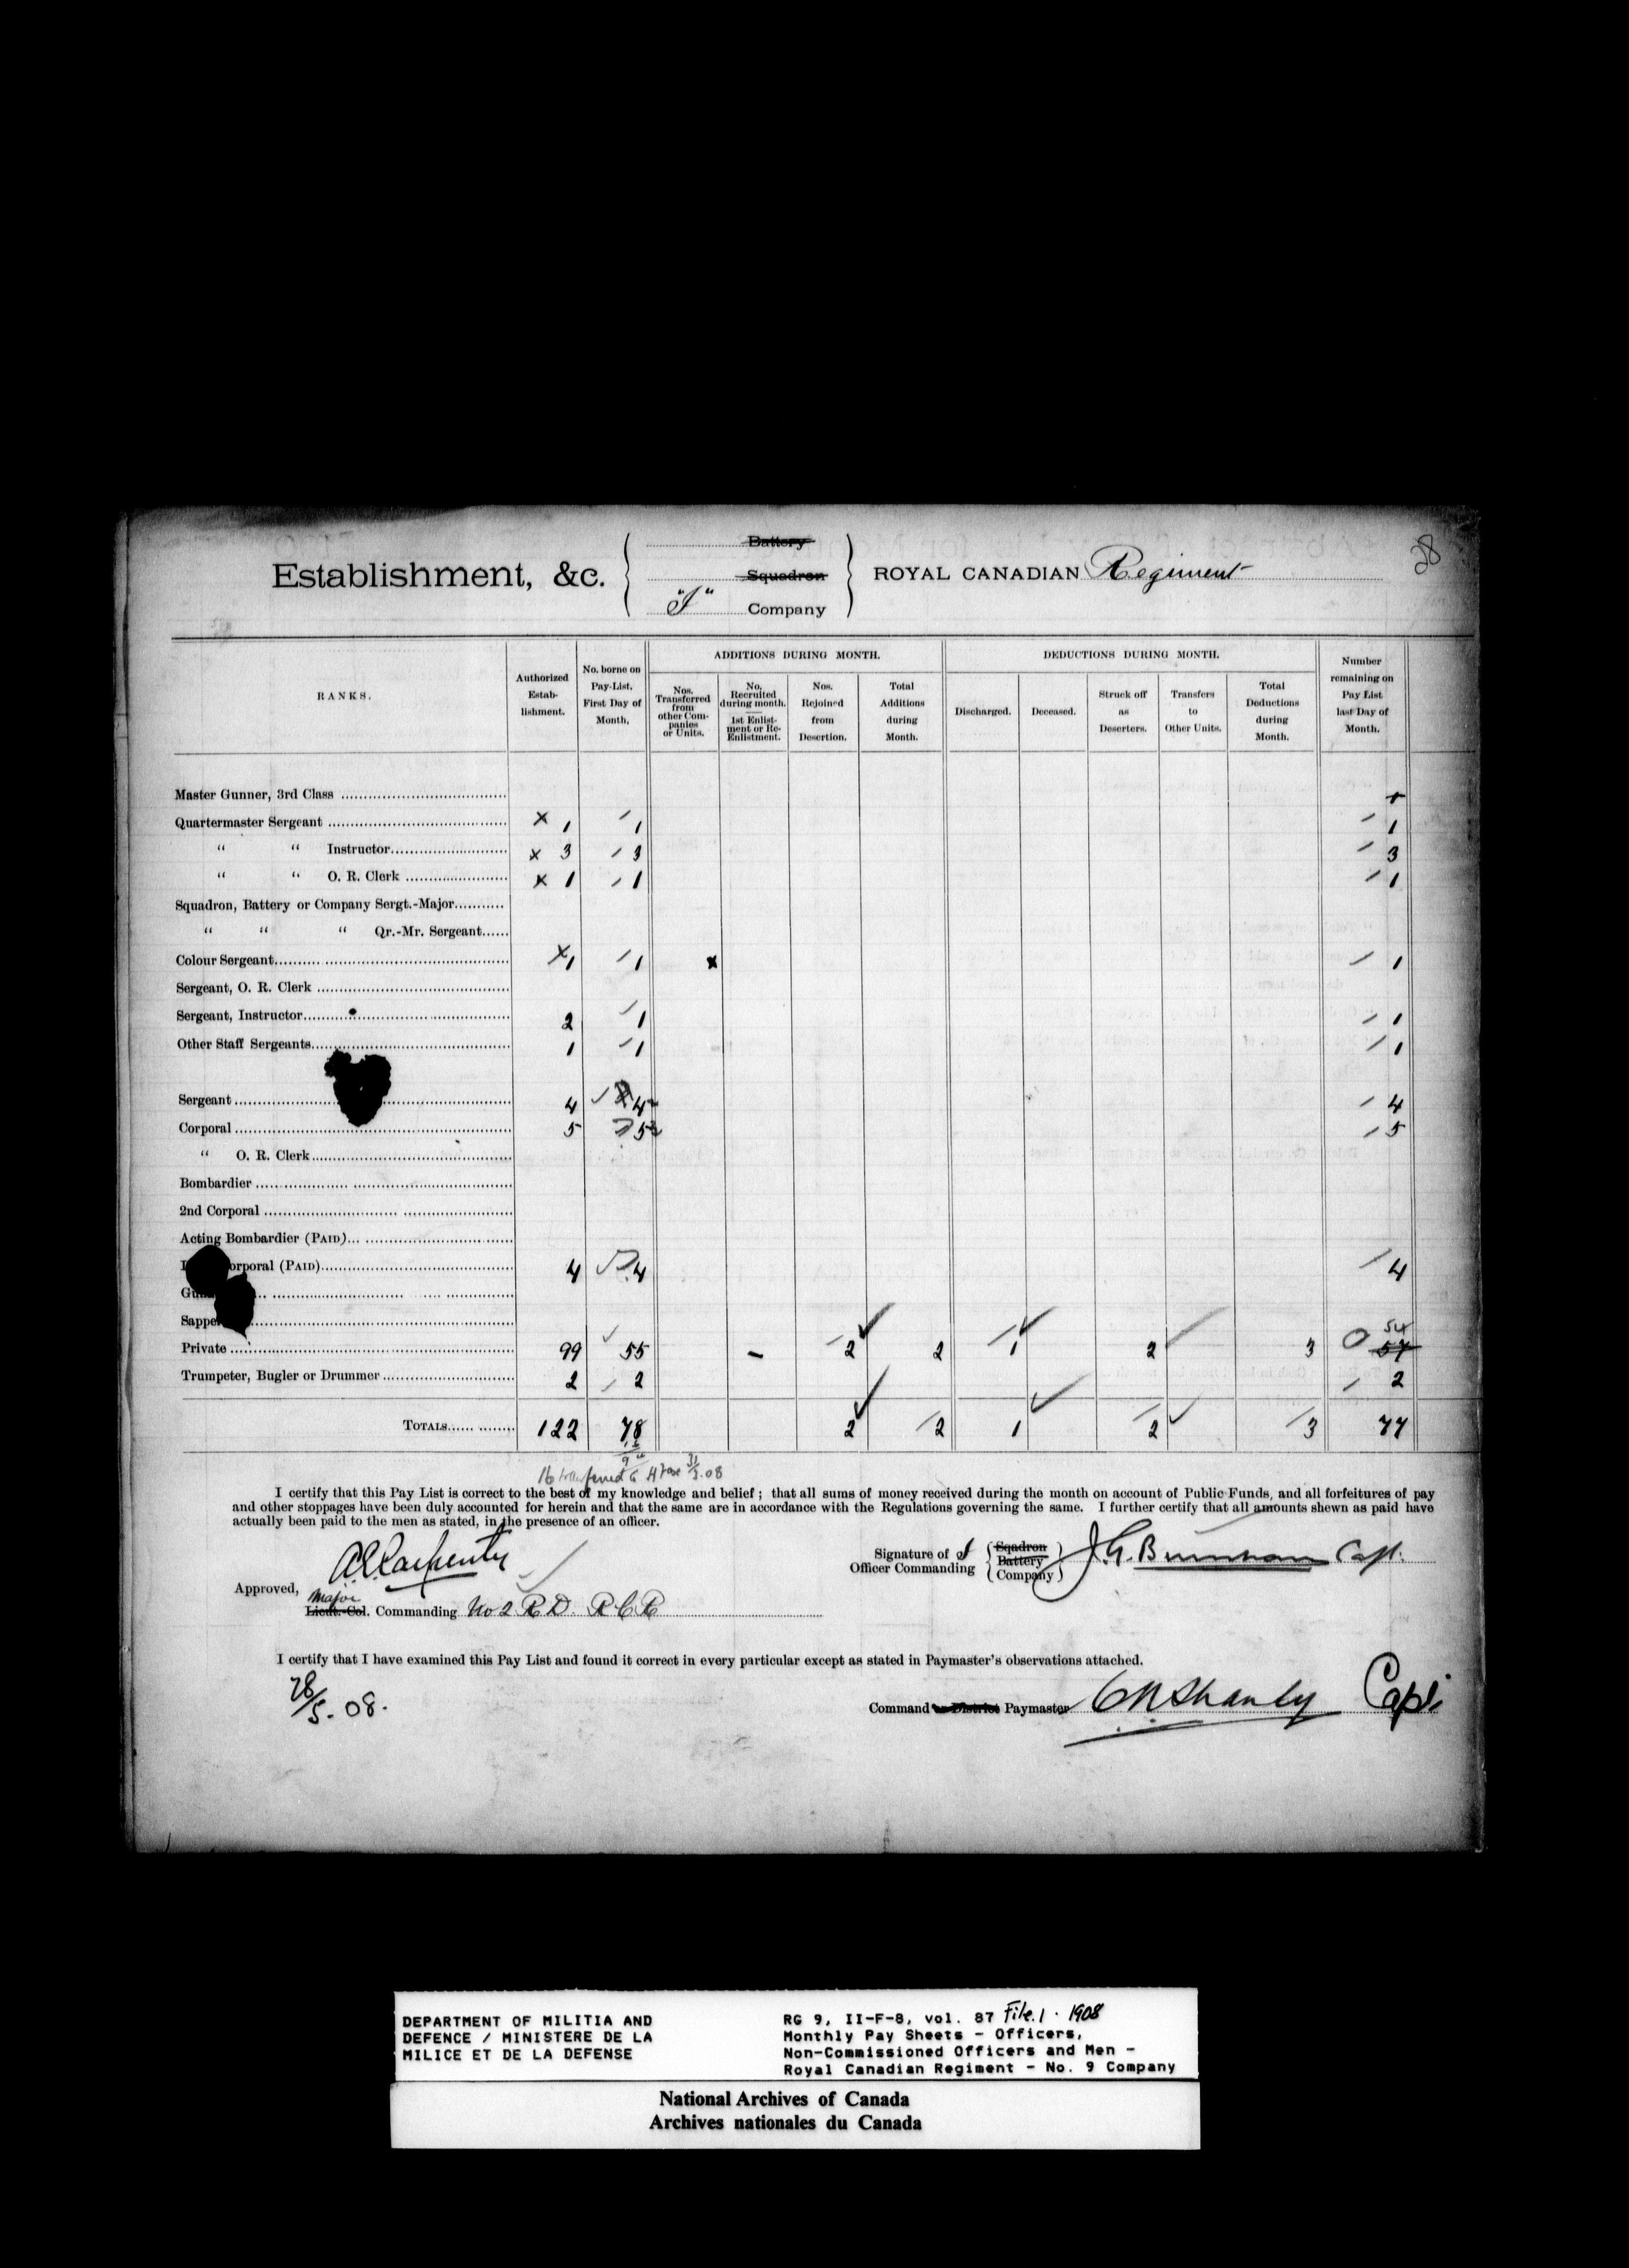 28
Battery
Establishment, &c. Squadron ROYAL CANADIAN Regiment
"I" Company
RANKS.
Authorized Establishment.
No. borne on Pay-List, First Day of Month.
ADDITIONS DURING MONTH.
Nos. Transferred from other Companies or Units.
No. Recruited during month. 1st Enlistment or Re-Enlistment.
Nos. Rejoined from Desertion.
Total Additions during Month.
DEDUCTIONS DURING MONTH.
Discharged.
Deceased.
Struck off as Deserters.
Transfers to Other Units.
Total Deductions during Month.
Number remaining on Pay List last Day of Month.
Master Gunner, 3rd Class
Quartermaster Sergeant x 1 1 1
" " Instructor x 3 3 3
" " O. R. Clerk x 1 1 1
Squadron, Battery or Company Sergt.-Major
" " " Qr.-Mr. Sergeant
Colour Sergeant x 1 1 x 1
Sergeant, O. R. Clerk
Sergeant, Instructor 2 1 1
Other Staff Sergeants 1 1 1
Sergeant 4 4 4
Corporal 5 5 5
" O. R. Clerk
Bombardier
2nd Corporal
Acting Bombardier (PAID)
orporal (PAID) 4 4 4
Gu
Sappe
Private 99 55 – 2 2 1 2 3 54 57
Trumpeter, Bugler or Drummer 2 2 2
TOTALS 122 78 2 2 1 2 3 77
16 transferred to H 31/3.08
I certify that this Pay List is correct to the best of my knowledge and belief ; that all sums of money received during the month on account of Public Funds, and all forfeitures of pay
and other stoppages have been duly accounted for herein and that the same are in accordance with the Regulations governing the same. I further certify that all amounts shewn as paid have
actually been paid to the men as stated, in the presence of an officer.
A E Carpenter
Signature of I Officer Commanding Sqadron Battery Company J. G. Burnham Capt.
Approved,
Major
Lieut.-Col. Commanding No 2 R D. R C R
I certify that I have examined this Pay List and found it correct in every particular except as stated in Paymaster's observations attached.
28/5. 08.
Command or District Paymaster C N Shanly Capt
DEPARTMENT OF MILITIA AND
DEFENCE / MINISTERE DE LA
MILICE ET DE LA DEFENSE
RG 9, II-F-8, vol. 87 File.1 · 1908
Monthly Pay Sheets - Officers,
Non-Commissioned Officers and Men -
Royal Canadian Regiment - No. 9 Company
National Archives of Canada
Archives nationales du Canada